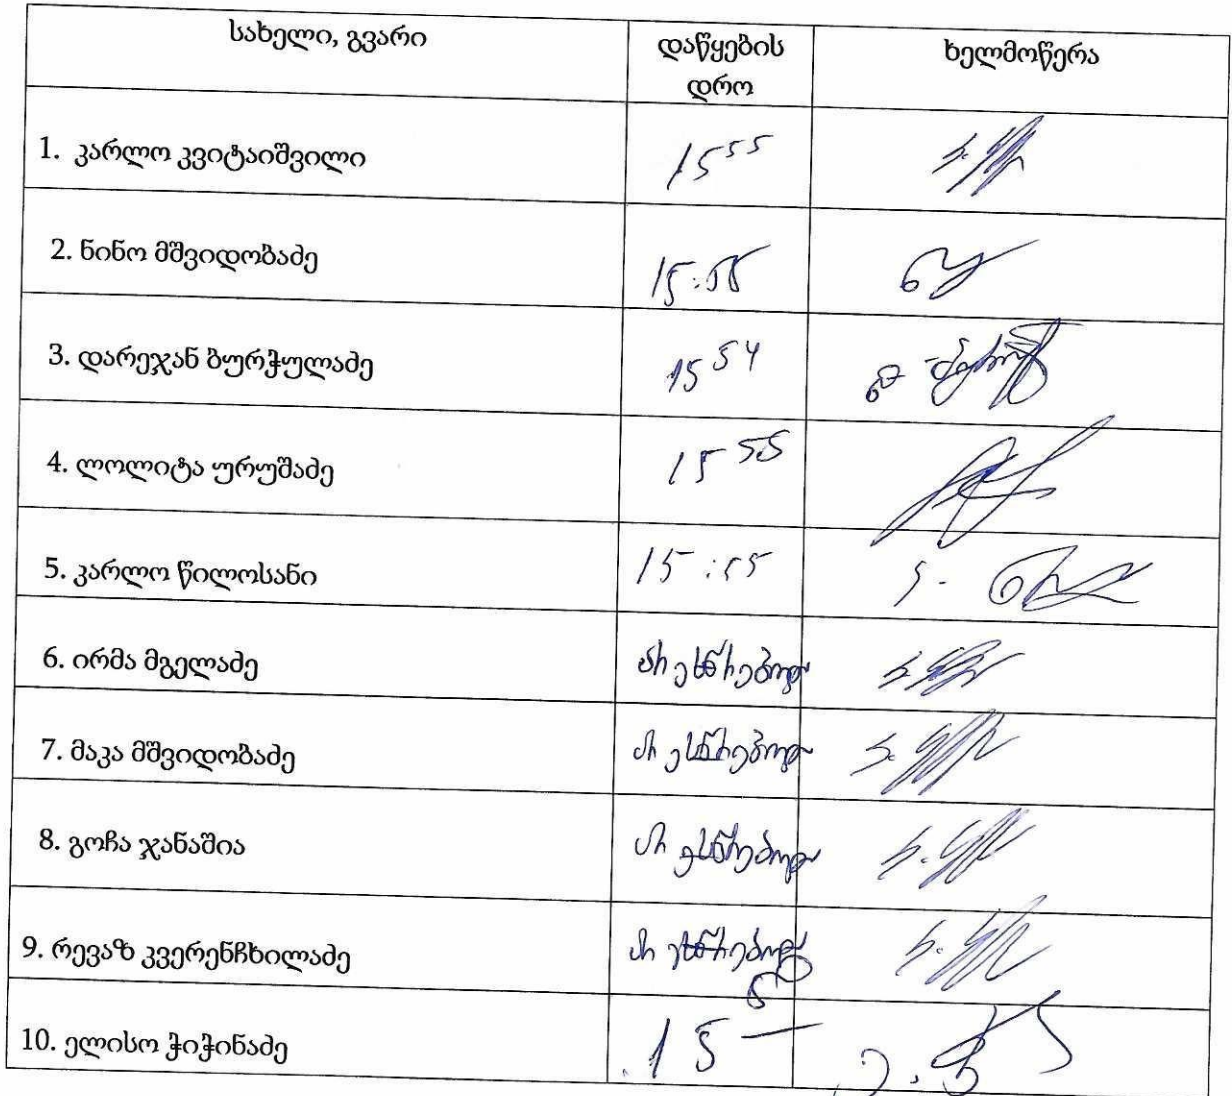 სახელი, გვარი
დაწყების
დრო
ხელმოწერა
1. კარლო კვიტაიშვილი 15⁵⁵
2. ნინო მშვიდობაძე 15:55
3. დარეჯან ბურჭულაძე 15⁵⁴
4. ლოლიტა ურუშაძე 15⁵⁵
5. კარლო წილოსანი 15:55
6. ირმა მგელაძე არ ესწრებოდა
7. მაკა მშვიდობაძე არ ესწრებოდა
8. გოჩა ჯანაშია არ ესწრებოდა
9. რევაზ კვერენჩხილაძე არ ესწრებოდა
10. ელისო ჭიჭინაძე 15